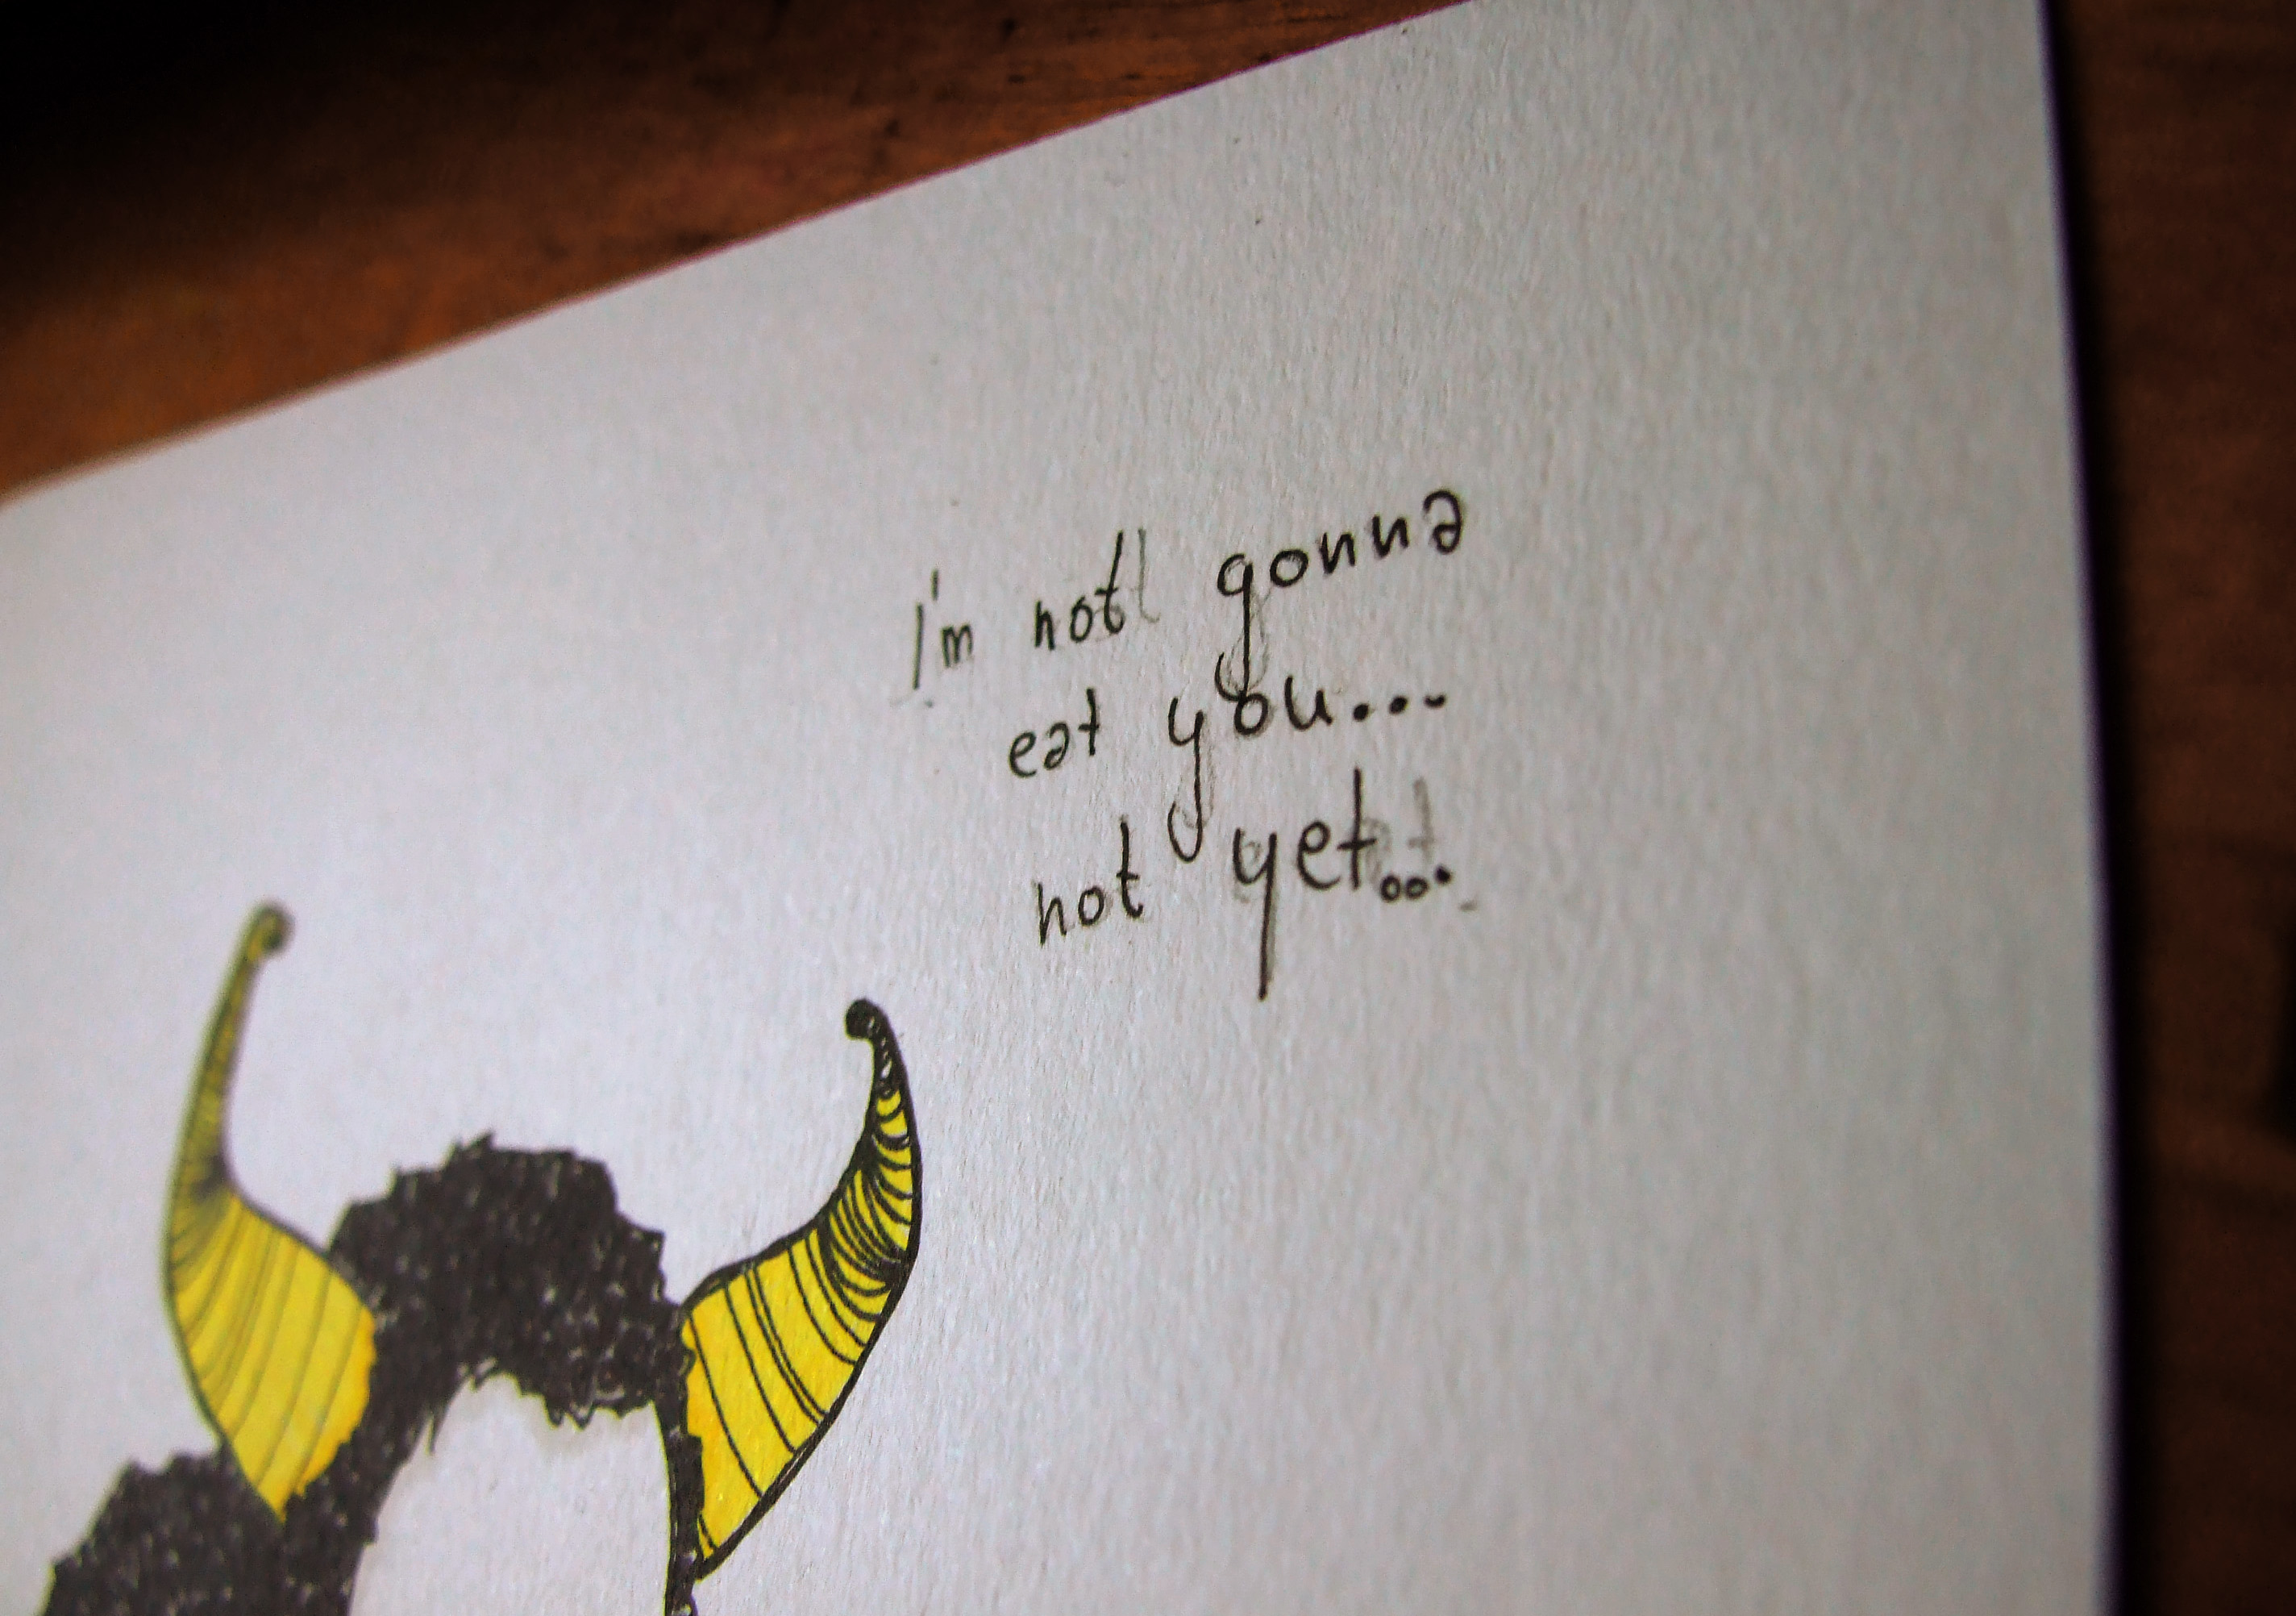 I'm not gonna
eat you...
not yet...